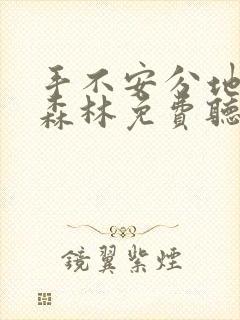 手不安分地
森林免費聽
鏡翼紫煙